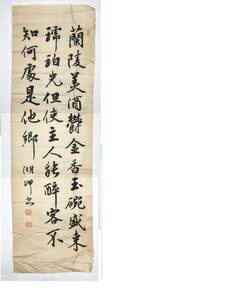 蘭陵美酒鬱金香玉碗盛来
琥珀光但使主人能醉客不
知何處是他鄉